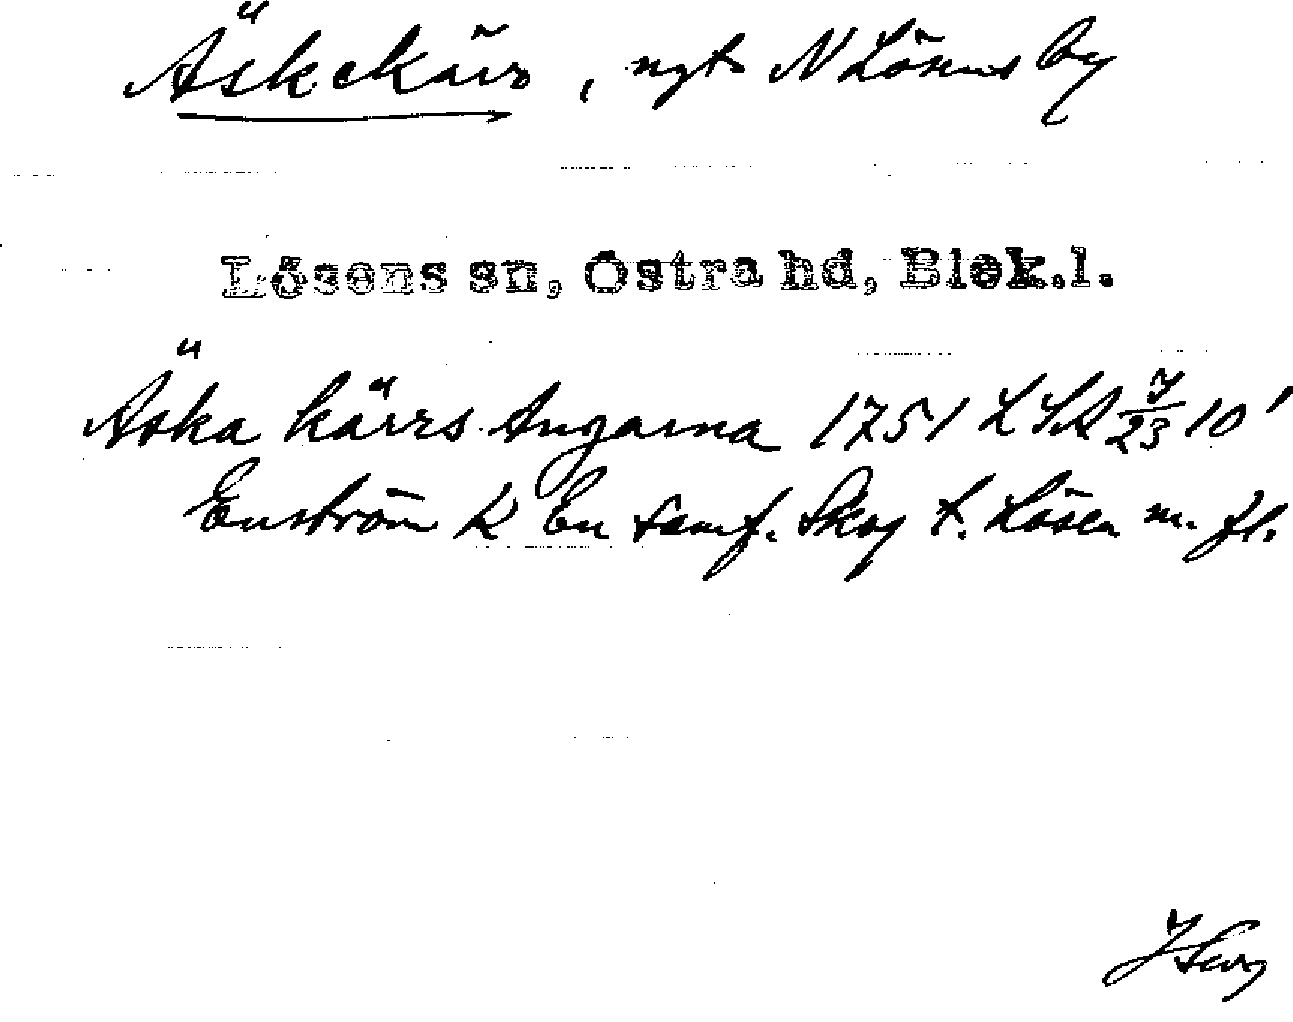 Äskekärr, ngt N Lösens by
Lösens sn, Östra hd, Blek.l.
Äska kärrs Ängarna 1751 LSA 7/23 10'
Enström K En samf. Skog t. Lösen m. fl.